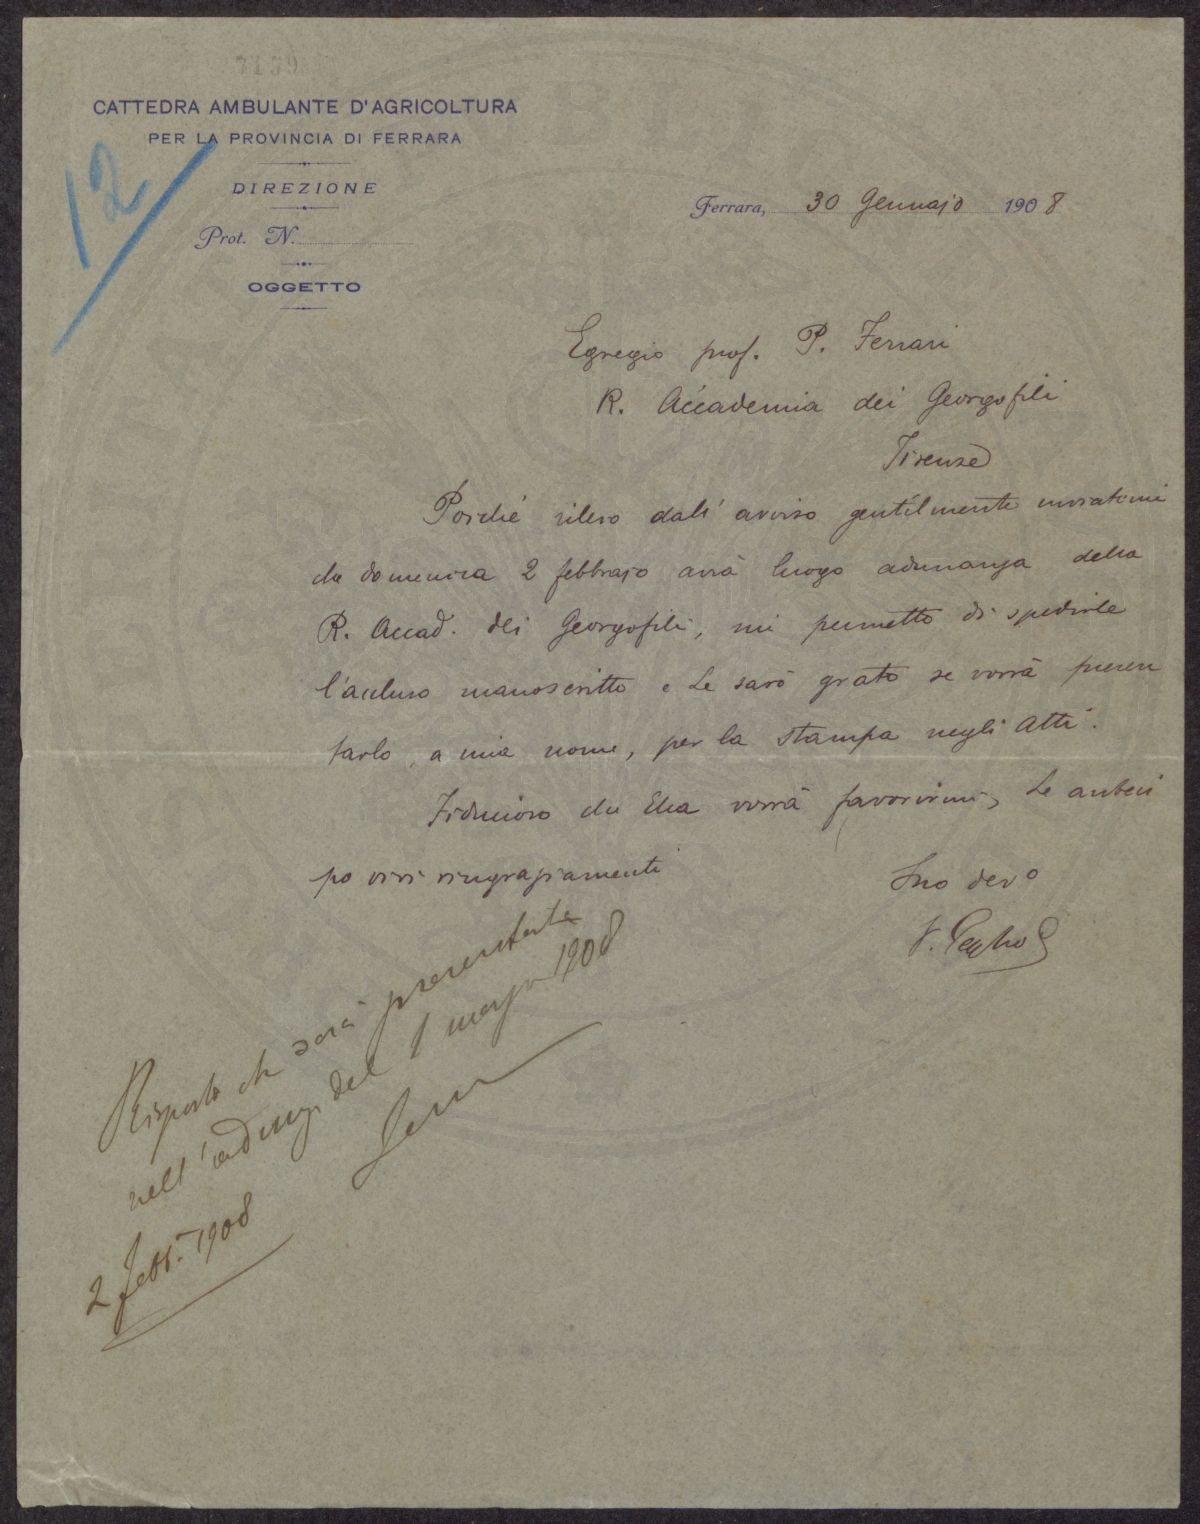 7139
CATTEDRA AMBULANTE D'AGRICOLTURA
PER LA PROVINCIA DI FERRARA
DIREZIONE
Prot. N.
OGGETTO
12
Ferrara, 30 Gennajo 1908
Egregio prof. P. Ferrari
R. Accademia dei Georgofili
Firenze
Poichè rilevo dall' avviso gentilmente inviatomi
che domenica 2 febbrajo avrà luogo adunanza della
R. Accad. dei Georgofili, mi permetto di spedirle
l'accluso manoscritto e Le sarò grato se vorrà presen
tarlo, a mia nome, per la stampa negli Atti.
Fiducioso che Ella vorrà favorirmi, Le antici
po vivi ringraziamenti
Suo devo
Risposto che sarà presentata
nell'adunza del 1 marzo 1908
2 febb. 1908